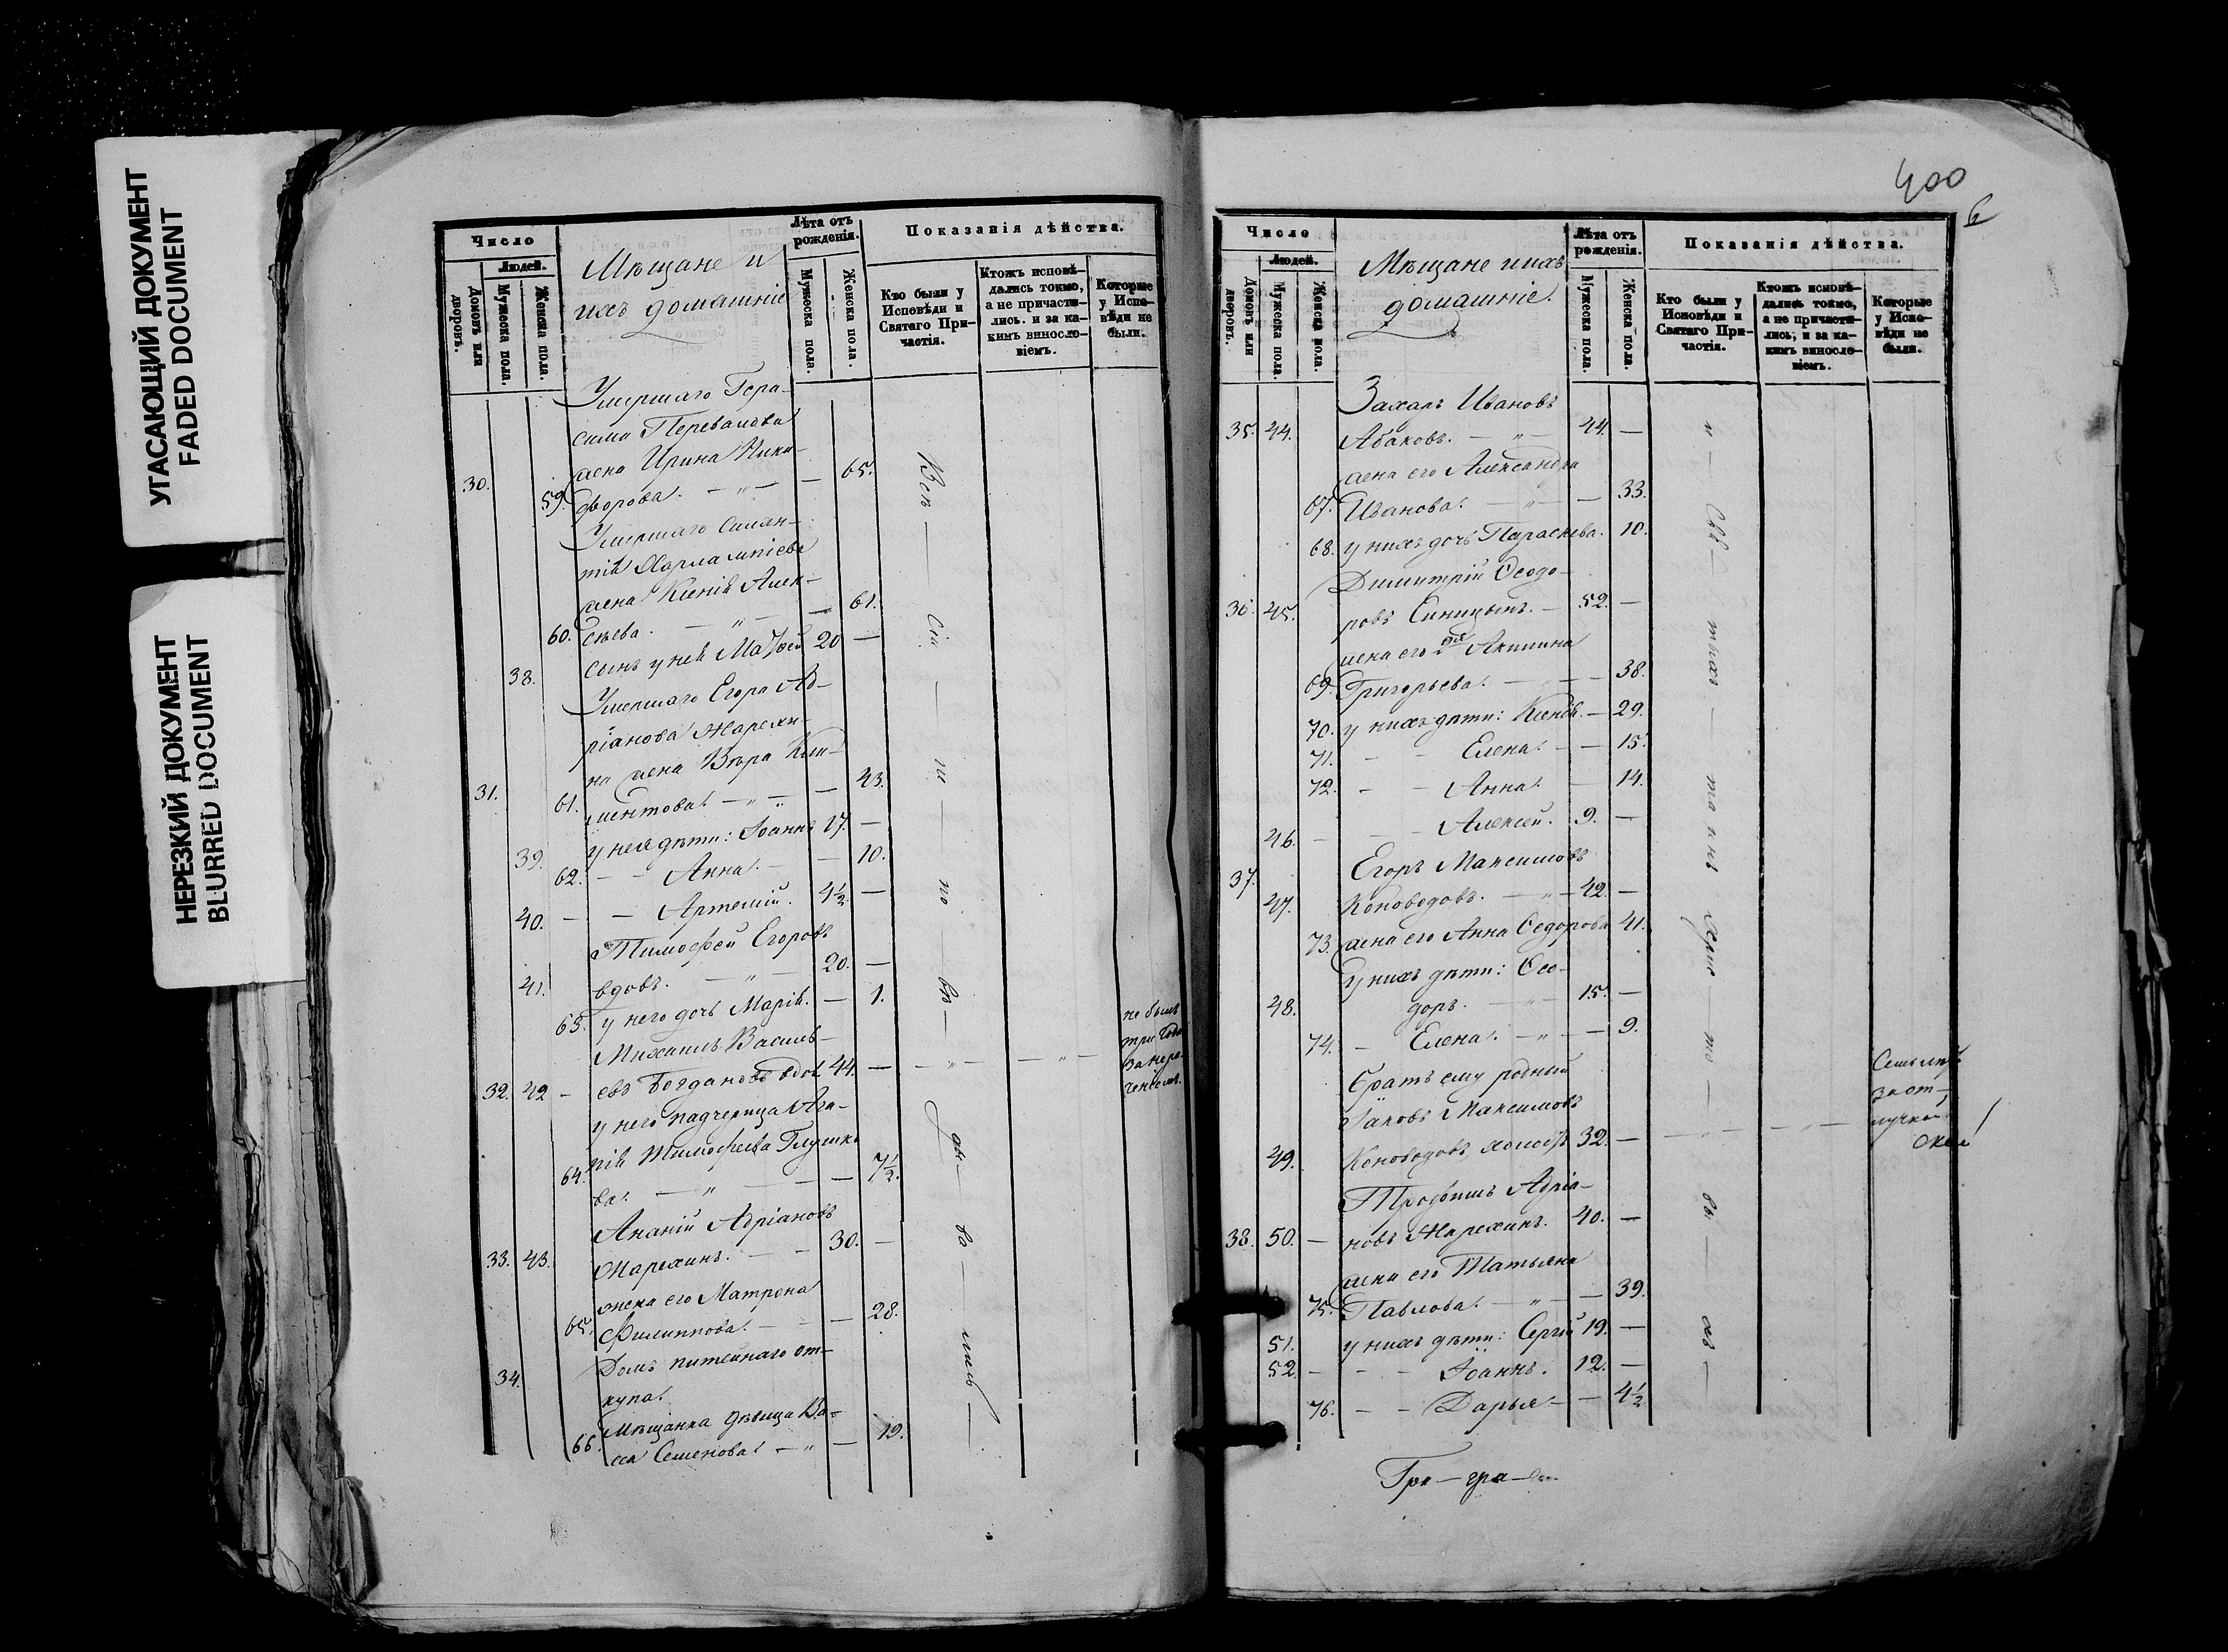 УГАСАЮЩИЙ ДОКУМЕНТ
FADED DOCUMENT
НЕРЕЗКИЙ ДОКУМЕНТ
BLURRED DOCUMENT
Число
Людей.
Домовъ или дворовъ.
Мужеска пола.
Женска пола.
Мѣщане и
ихъ домашніе
Лѣта отъ рожденія.
Мужеска пола.
Женска пола.
Показанія дѣйства.
Кто были у Исповѣди и Святаго Причастія.
Ктожъ исповѣдались токмо, а не причастились. и за какимъ винословіемъ.
Которые у Исповѣди не были.
Умершаго Гера-
сима Перевалова
30. жена Ирина Ники-
59. форова. — „ — — 65.
Умершаго
Харлампіева
жена Ксенія Алек-
60. сѣева. — „ — — 61.
38. сынъ у ней Матѳей 20 —
Умершаго Егора Ад-
ріанова Жарехи-
31. на жена Вѣра Кли-
61. ментова. — „ — — 43.
39. у нея дѣти: Іоаннъ 17. —
62. — — Анна. — — 10.
40. — — Артемій. 4½ —
Тимофей Егоровъ
41. вдовъ. — „ — 20. —
63. у него дочь Марія. — 1.
Михаилъ Василь-
32. 42 — евъ Богдановъ вдов. 44. — — „ — — „ —
не былъ
три года
за нера-
у него падчерица Ага-
64. пія Тимофеева Глушко-
ва. — „ — — 7½.
Ананій Адріановъ
33. 43. Жарехинъ. — — 30. —
жена его Матрона
65. Филиппова. — — — 28.
34. Домъ питейнаго от-
купа.
66. Мѣщанка дѣвица Ва-
сса Семенова. — „ — 19.
Всѣ — сіи — и — по — вѣ — ды — ва — лись —
400
6
Число
Людей.
Домовъ или дворовъ.
Мужеска пола.
Женска пола.
Мѣщане и ихъ
домашніе.
Лѣта отъ рожденія.
Мужеска пола.
Женска пола.
Показанія дѣйства.
Кто были у Исповѣди и Святаго Причастія.
Ктожъ исповѣдались токмо, а не причастились, и за какимъ винословіемъ.
Которые у Исповѣди не были.
Захаръ Ивановъ
35. 44. Абаковъ. — „ — 44. —
жена его Александра
67. Иванова. — „ — — 33.
68. у нихъ дочь Параскева. 10.
Димитрій Ѳеодо-
36. 45. ровъ Синицынъ. — 52. —
жена его Акилина
69. Григорьева. — — 38.
70. у нихъ дѣти: Ксенія. — 29.
71. — Елена. — — 15.
72. — — Анна. — 14.
46. — — Алексей. 9. —
Егоръ Максимовъ
37.
47. Коноводовъ. — „ — 42. —
73. жена его Анна Ѳедорова 41.
У нихъ дѣти: Ѳео-
48. доръ. — „ — 15. —
74. — Елена. — „ — — 9.
братъ ему родный
Іаковъ Максимовъ
49. Коноводовъ, холостъ 32. — — „ — — „ —
Семь лѣтъ
за от-
лучкой
Трофимъ Адріа-
38. 50. — новъ Жарехинъ. 40. —
жена его Татьяна
75. Павлова. — „ — — 39.
51. у нихъ дѣти: Сергій 19. —
52. — — Іоаннъ. 12. —
76. — — Дарья — — 4½
и — Свя — тыхъ — таинъ
Гра — гра —